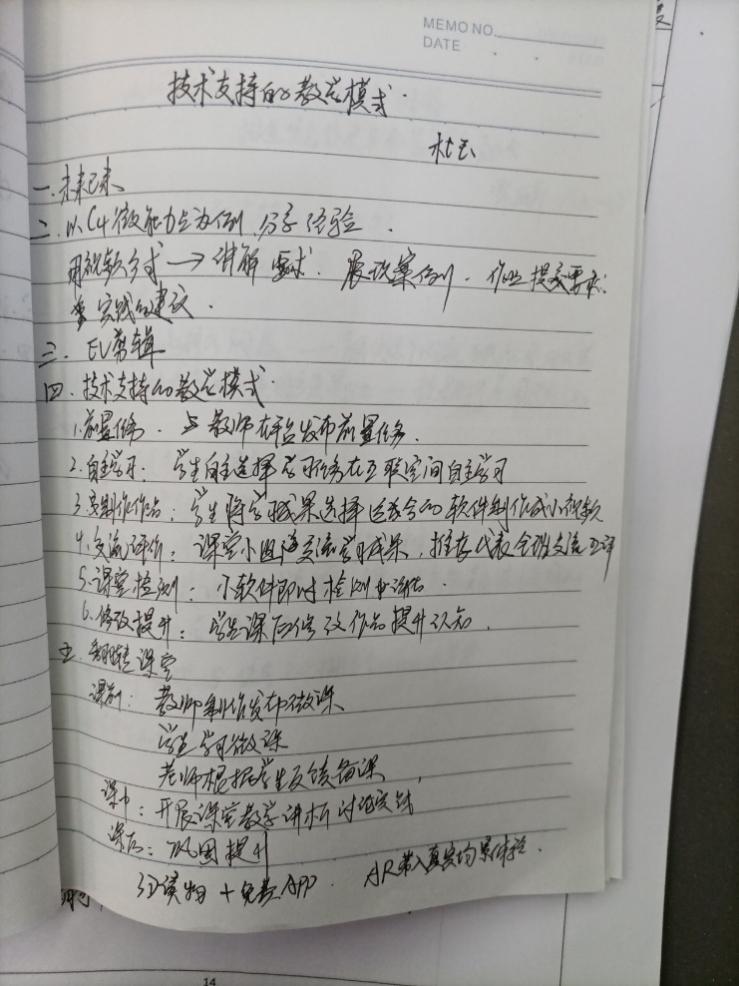 MEMO NO.
DATE
技术支持的教学模式.
杜玉
一.未来已来
二.以C4微能力点为例,分享经验.
用视频方式→讲解要求.展现案例.作业提交要求.
实践的建议.
三.EV剪辑
四.技术支持的教学模式.
1.前置任务.教师在平台发布前置任务.
2.自主学习:学生自主选择学习任务在互联空间自主学习
3.制作作品:学生将学习成果选择适合的软件制作成小视频
4.交流评价:课堂小组交流学习成果,推荐代表全班交流互评
5.课堂检测:小软件即时检测
6.修改提升:学生课后修改作品提升认知.
五.翻转课堂
课前:教师制作发布微课
学生学习微课
老师根据学生反馈备课
课中:开展课堂教学讲析讨论
课后:巩固提升
3D读物+免费APP.AR带入真实场景体验.
14